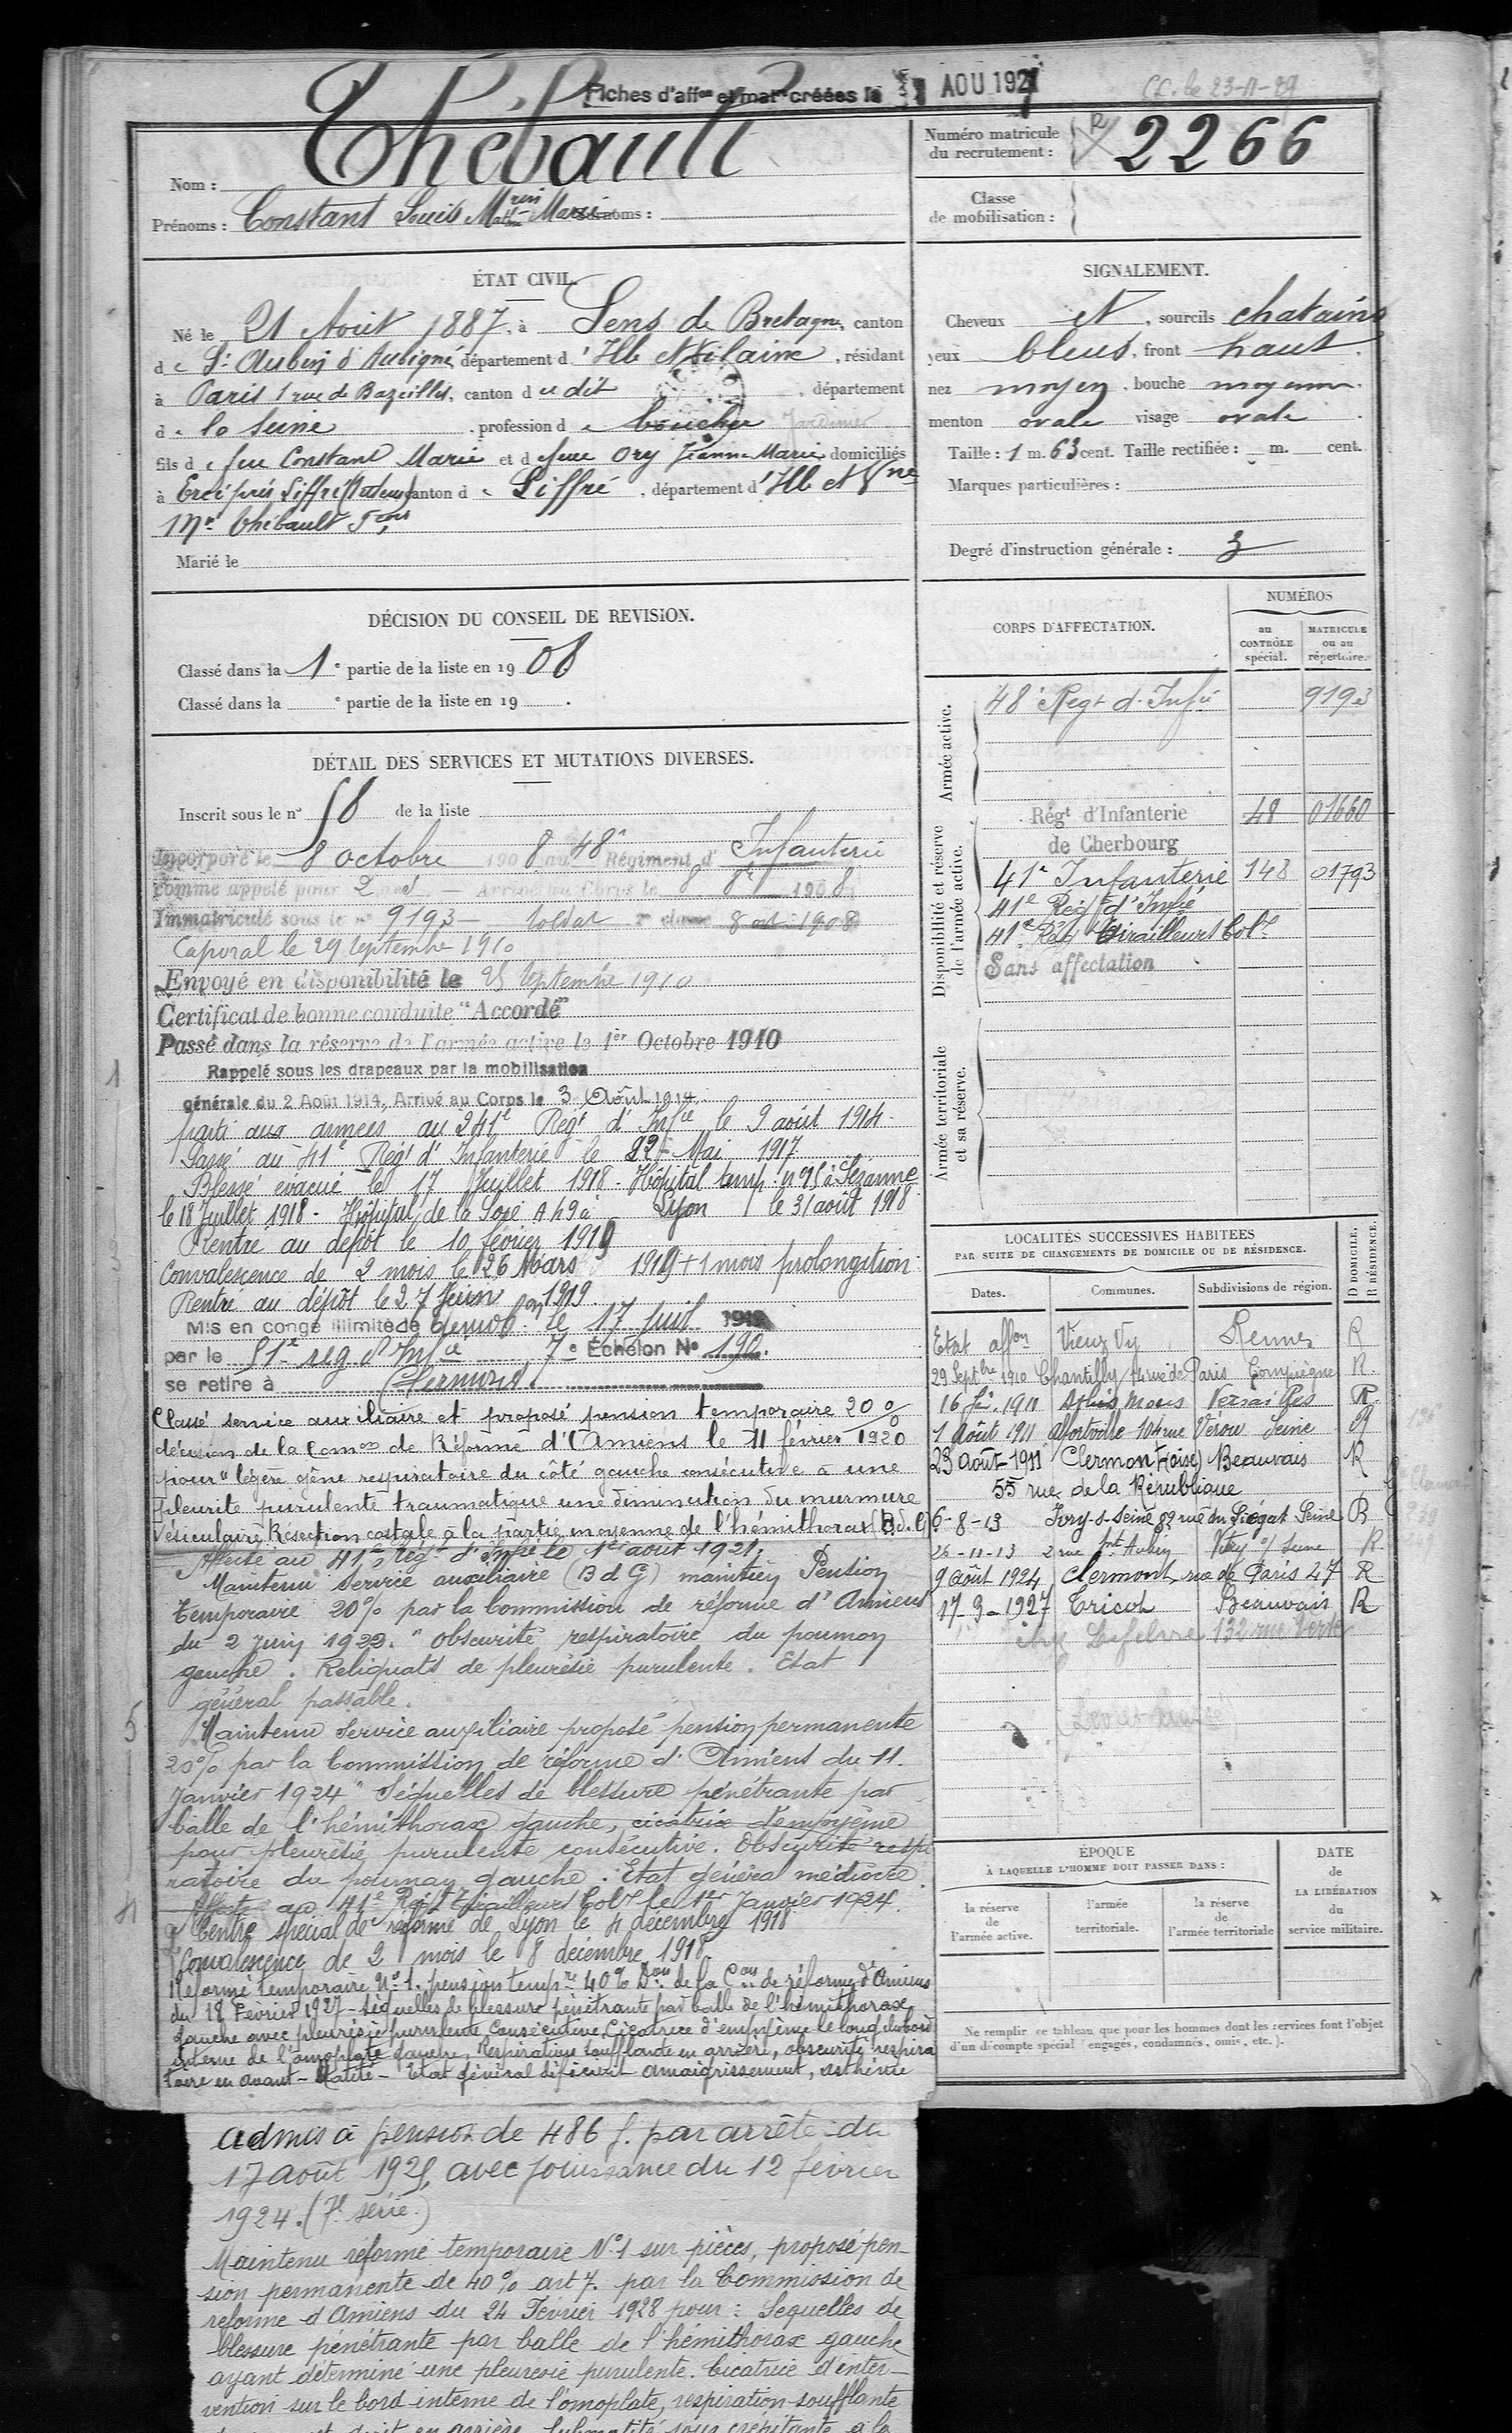 Fiches d'aff^on et mat^le créées le AOU 1927
CC. le 23-11-29
Nom : Thébault
Prénoms : Constant Louis Marie Surnoms :
Numéro matricule du recrutement : 2266
Classe de mobilisation :
ÉTAT CIVIL.
Né le 21 Août 1887, à Sens de Bretagne, canton
de St Aubin d'Aubigné, département d'Ille et Vilaine, résidant
à Paris 1 rue de Bazeilles, canton du dit, département
de la Seine, profession de boucher Jardinier
fils de feu Constant Marie et de feue Ory Jeanne Marie domiciliés
à Ercé près Liffré (tuteur) canton de Liffré, département d'Ille et Vne
Mr Thébault Fçois
Marié le
SIGNALEMENT.
Cheveux et, sourcils chatains
yeux bleus, front haut.
nez moyen, bouche moyenne.
menton ovale visage ovale.
Taille : 1 m. 63 cent. Taille rectifiée : m. cent.
Marques particulières :
Degré d'instruction générale : 3
DÉCISION DU CONSEIL DE REVISION.
Classé dans la 1e partie de la liste en 1908
Classé dans la e partie de la liste en 19 .
DÉTAIL DES SERVICES ET MUTATIONS DIVERSES.
Inscrit sous le n° 58 de la liste
Incorporé le 8 octobre 1908 au 48e Régiment d'Infanterie
comme appelé pour 2 ans — Arrivé au Corps le 8 8bre 1908
Immatriculé sous le n° 9193 — soldat 2e classe 8 oct 1908
Caporal le 29 septembre 1910
Envoyé en disponibilité le 25 septembre 1910
Certificat de bonne conduite "Accordé"
Passé dans la réserve de l'armée active le 1er Octobre 1910
Rappelé sous les drapeaux par la mobilisation
générale du 2 Août 1914, Arrivé au Corps le 3 Août 1914
parti aux armées au 241e Régt d'Infie le 9 août 1914
Passé au 41e Régt d'Infanterie le 22 Mai 1917
Blessé évacué le 17 Juillet 1918 - Hôpital temp. n° 95 à Sézanne
le 18 Juillet 1918 - Hôpital de la Soie A 49 à Lyon le 31 août 1918
Rentré au dépôt le 10 février 1919
Convalescence de 2 mois le 26 Mars 1919 + 1 mois prolongation
Rentré au dépôt le 27 Juin 1919
Mis en congé illimité de démobon le 17 juil. 1919
par le 51e reg d'Infie 7e Échelon N° 190.
se retire à Clermont
Classé service auxiliaire et proposé pension temporaire 20%
décision de la Comon de Réforme d'Amiens le 11 février 1920
pour "légère gêne respiratoire du côté gauche consécutive à une
pleurite purulente traumatique une diminution du murmure
vésiculaire, Résection costale à la partie moyenne de l'hémithorax (B.d.G)
Affecté au 41e Régt d'Infie le 1er août 1921.
Maintenu service auxiliaire (B d G) maintien Pension
temporaire 20% par la Commission de réforme d'Amiens
du 2 Juin 1922. "Obscurité respiratoire du poumon
gauche. Reliquats de pleurésie purulente. Etat
général passable.
Maintenu service auxiliaire proposé pension permanente
20% par la Commission de réforme d'Amiens du 11
Janvier 1924 "Séquelles de blessure pénétrante par
balle de l'hémithorax gauche, cicatrice d'empyème
pour pleurésie purulente consécutive. Obscurité respi
ratoire du poumon gauche. Etat général médiocre.
Affecté au 41e Régt Tirailleurs Colx le 1er Janvier 1924.
Centre spécial de réforme de Lyon le 4 décembre 1918
Convalescence de 2 mois le 8 décembre 1918
Réformé temporaire N° 1. pension tempre 40% Don de la Con de réforme d'Amiens
du 18 Février 1927 - Séquelles de blessure pénétrante par balle de l'hémithorax
gauche avec pleurésie purulente consécutive. Cicatrice d'empyème le long du bord
interne de l'omoplate gauche, Respiration soufflante en arrière, obscurité respira
toire en avant - Matité - Etat général déficient amaigrissement, asthénie
admis à pension de 486 f. par arrêté du
17 août 1925, avec jouissance du 12 février
1924. (7e série.)
Maintenu réformé temporaire N°1 sur pièces, proposé pen-
sion permanente de 40% art 7. par la Commission de
réforme d'Amiens du 24 Février 1928 pour : Sequelles de
blessure pénétrante par balle de l'hémithorax gauche
ayant déterminé une pleurésie purulente. Cicatrice d'inter-
vention sur le bord interne de l'omoplate, respiration soufflante
CORPS D'AFFECTATION.
NUMÉROS
au CONTRÔLE spécial.
MATRICULE ou au répertoire.
Armée active.
48e Régt d'Infie 9193
Disponibilité et réserve de l'armée active.
Régt d'Infanterie 48 01660
de Cherbourg
41e Infanterie 148 01793
41e Régt d'Infie
41e Régt Tirailleurs Colx
Sans affectation
Armée territoriale et sa réserve.
LOCALITÉS SUCCESSIVES HABITÉES
PAR SUITE DE CHANGEMENTS DE DOMICILE OU DE RÉSIDENCE.
Dates. Communes. Subdivisions de région. D DOMICILE. R RÉSIDENCE.
Etat affon Vieux Vy Rennes R
29 Septbre 1910 Chantilly, 74 rue de Paris Compiègne R.
16 fév. 1911 Athis Mons Versailles R.
1 Août 1911 Alfortville 104 rue Véron Seine R
23 Août 1911 Clermont (oise) Beauvais R
55 rue de la République
6-8-13 Ivry-s-Seine 82 rue du Liégat Seine R
26-11-13 2 rue St Aubin Vitry s/ Seine R.
9 août 1924 Clermont, rue de Paris 47 R
17-9-1927 Tricot Beauvais R
chez Lefebvre 132 rue Verte
ÉPOQUE
À LAQUELLE L'HOMME DOIT PASSER DANS :
la réserve de l'armée active.
l'armée territoriale.
la réserve de l'armée territoriale
DATE de LA LIBÉRATION du service militaire.
Ne remplir ce tableau que pour les hommes dont les services font l'objet
d'un décompte spécial (engagés, condamnés, omis, etc.).